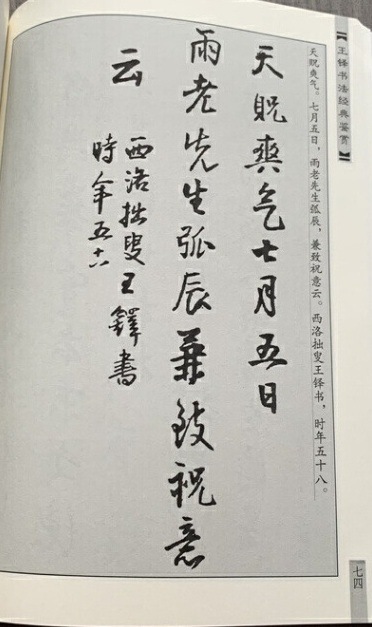 【王铎书法经典鉴赏】
天贶爽气。七月五日，雨老先生弧辰，兼致祝意云。西洛拙叟王铎书，时年五十八。
天貺爽气七月五日
雨老先生弧辰兼致祝意
云
西洛拙叟王鐸書
時年五十八
七四